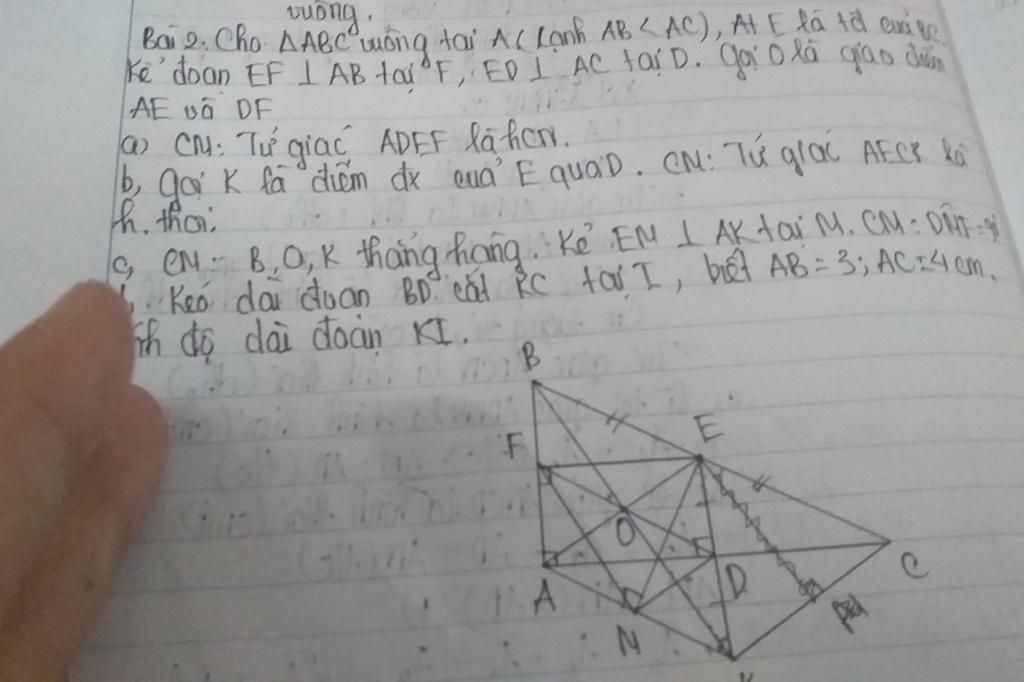 vuông.
Bài 2. Cho ΔABC vuông tại A (cạnh AB < AC), E là tđ của BC.
Kẻ đoạn EF ⊥ AB tại F, ED ⊥ AC tại D. Gọi O là giao điểm
AE và DF
a) CM: Tứ giác ADEF là hcn.
b, gọi K là điểm đx của E qua D. CM: Tứ giác AECK là
h. thoi.
c, CM: B, O, K thẳng hàng. Kẻ EM ⊥ AK tại M. CM: DMF = 9
Kéo dài đoạn BD cắt KC tại I, biết AB = 3; AC = 4 cm.
độ dài đoạn KI.
B
F
E
O
A
D
C
M
K